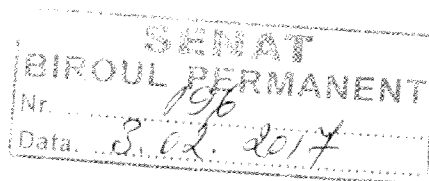 SENAT
BIROUL PERMANENT
Nr. 196
Data. 3. 02. 2017